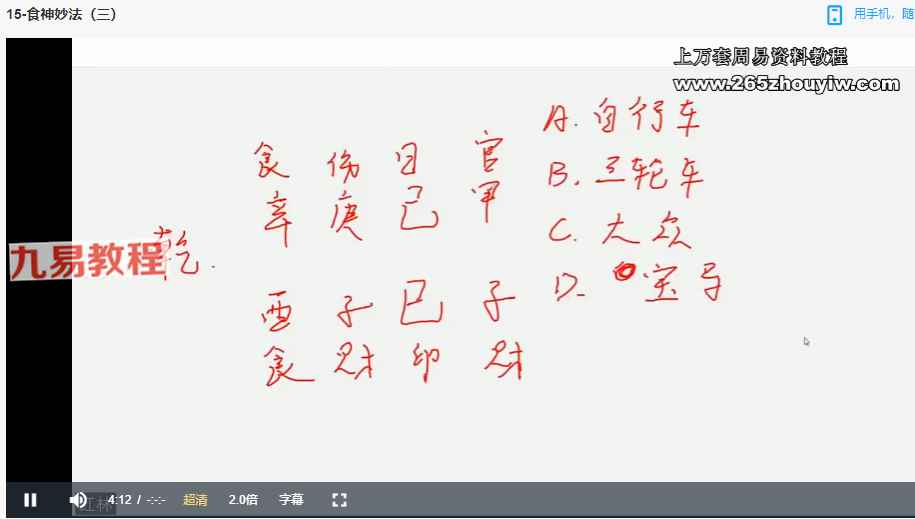 15-食神妙法（三）
用手机，随
上万套周易资料教程
www.265zhouyiw.com
A. 自行车
食 伤 日 官
B. 三轮车
辛 庚 己 甲
C. 大众
乾.
九易教程
D. 宝马
酉 子 巳 子
食 财 印 财
4:12 / -:-:-
超清
2.0倍
字幕
江林